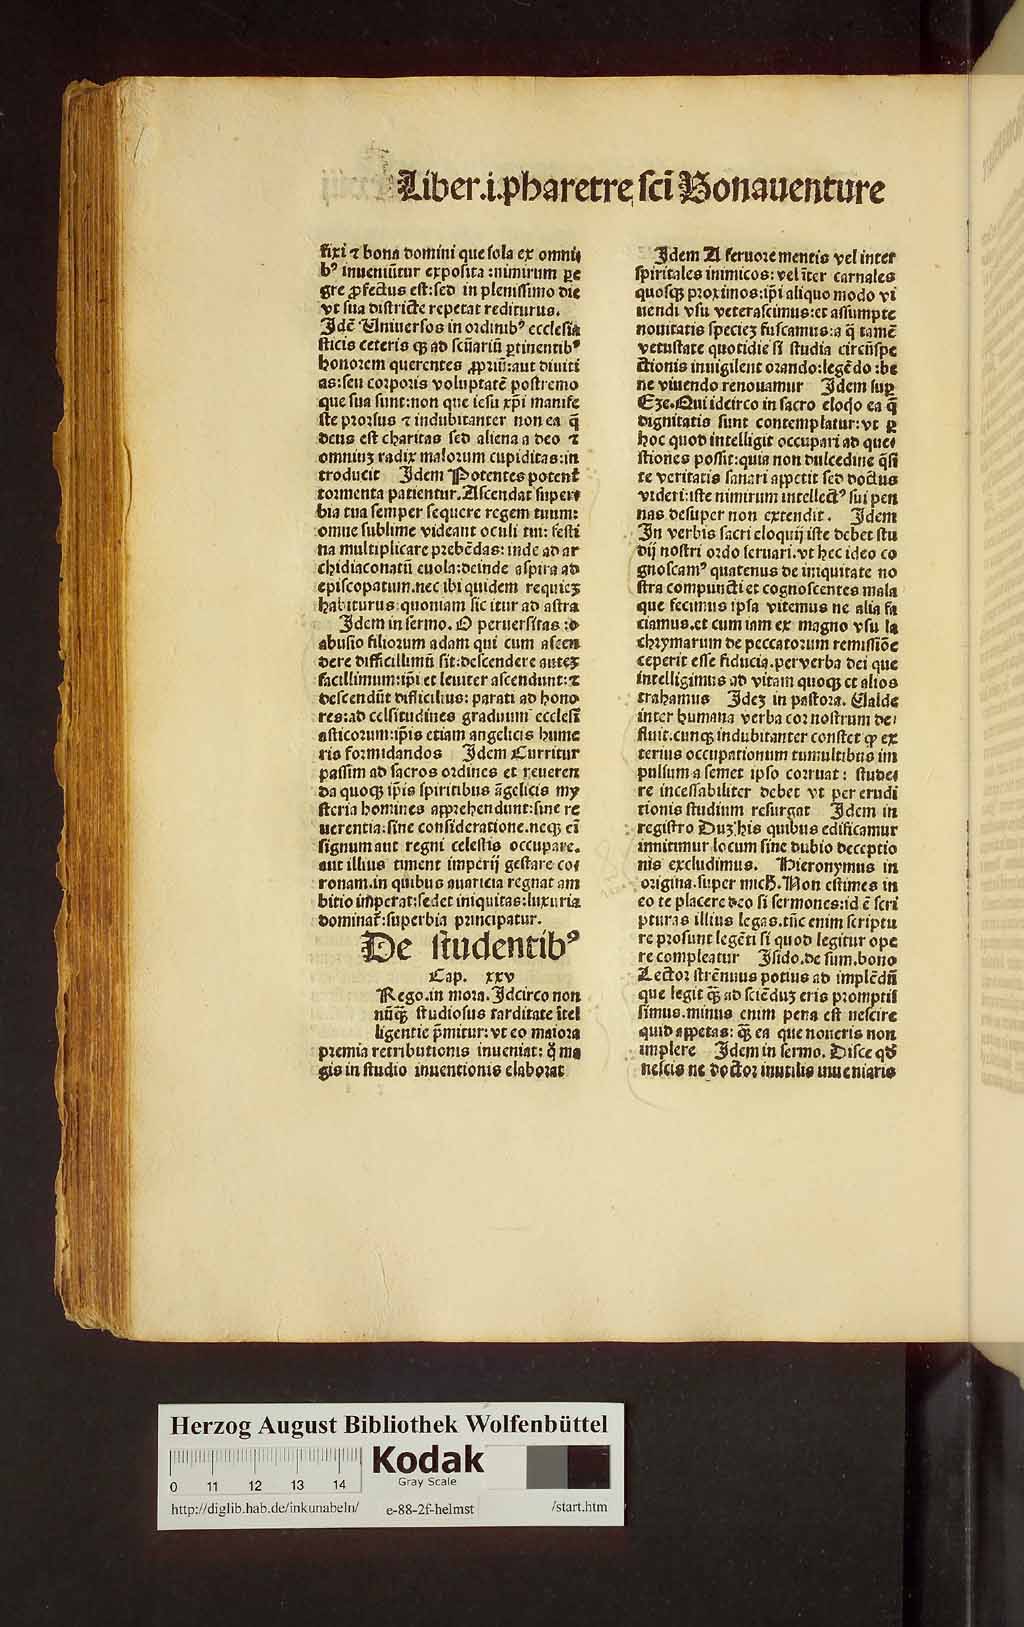 Liber.i.pharetre sci̅ Bonauenture
fixi ⁊ bona domini que sola ex omni
bꝰ inueniu̅tur exposita :nimirum ꝑe
gre ꝓfectus est:sed in plenissimo die
vt sua districte repetat rediturus.
Ide̅ Uniuersos in ordinibꝰ ecclesia
sticis ceteris qꝫ ad scu̅ariu̅ ꝑtinentibꝰ
honorem querentes ꝓpriu̅:aut diuiti
as:seu corporis voluptate̅ postremo
que sua sunt:non que iesu xp̅i manife
ste prorsus ⁊ indubitanter non ea q̅
deus est charitas sed aliena a deo ⁊
omniuꝫ radix malorum cupiditas:in
troducit Idem Potentes potent̅
tormenta patientur.Ascendat super⸗
bia tua semper sequere regem tuum:
omne sublime videant oculi tui: festi
na multiplicare prebe̅das: inde ad ar
chidiaconatu̅ euola:deinde aspira ad
episcopatum.nec ibi quidem requieꝫ
habiturus quoniam sic itur ad astra
Idem in sermo. O peruersitas :o
abusio filiorum adam qui cum ascen
dere difficillimu̅ sit:descendere auteꝫ
facillimum:ip̅i et leuiter ascendunt:⁊
descendu̅t difficilius: parati ad hono
res:ad celsitudines graduum ecclesi̅
asticorum:ip̅is etiam angelicis hume
ris formidandos Idem Curritur
passim ad sacros ordines et reueren
da quoqꝫ ip̅is spiritibus a̅gelicis my
steria homines apprehendunt:sine re
uerentia:sine consideratione.neqꝫ ei̅
signum aut regni celestis occupare.
aut illius timent imperij gestare co⸗
ronam.in quibus auaricia regnat am
bitio imperat:sedet iniquitas:luxuria
dominat̅:superbia principatur.
De studentibꝰ
Cap. xxv
Rego.in mora. Idcirco non
nu̅qꝫ studiosus tarditate i̅tel
ligentie p̅mitur: vt eo maiora
premia retributionis inueniat: q̅ ma
gis in studio inuentionis elaborat
Idem A feruore mentis vel inter
spiritales inimicos: vel i̅ter carnales
quosqꝫ proximos:ip̅i aliquo modo vi
uendi vsu veterascimus:et assumpte
nouitatis specieꝫ fuscamus:a q̅ tame̅
vetustate quotidie si studia circu̅spe
ctionis inuigilent orando:lege̅do :be
ne viuendo renouamur Idem suꝑ
Eze.Qui idcirco in sacro eloq̇o ea q̅
dignitatis sunt contemplatur: vt ꝑ
hoc quod intelligit occupari ad que⸗
stiones possit:quia non dulcedine q̅si
te veritatis sanari appetit sed doctus
videri:iste nimirum intellectꝰ sui pen
nas desuper non extendit. Idem
In verbis sacri eloquij iste debet stu
dij nostri ordo seruari.vt hec ideo co
gnoscamꝰ quatenus de iniquitate no
stra compuncti et cognoscentes mala
que fecimus ipsa vitemus ne alia fa
ciamus.et cum iam ex magno vsu la
chrymarum de peccatorum remissio̅e
ceperit esse fiducia.per verba dei que
intelligimus ad vitam quoqꝫ et alios
trahamus Ideꝫ in pastora. Ualde
inter humana verba cor nostrum de⸗
fluit.cunqꝫ indubitanter constet ꝙ ex
terius occupationum tumultibus im
pulsum a semet ipso corruat : stude⸗
re incessabiliter debet vt per erudi
tionis studium resurgat Idem in
registro Duꝫ his quibus edificamur
innitimur locum sine dubio deceptio
nis excludimus. Hieronymus in
origina.super mich. Non estimes in
eo te placere deo si sermones:id e̅ scri
pturas illius legas.tu̅c enim scriptu
re prosunt lege̅ti si quod legitur ope
re compleatur Isido.de sum.bono
Lector stre̅nuus potius ad imple̅du̅
que legit qꝫ ad scie̅duꝫ eris promptis
simus.minus enim pena est nescire
quid appetas: qꝫ ea que noueris non
implere Idem in sermo. Disce qd̅
nescis ne doctor inutilis inueniaris
Herzog August Bibliothek Wolfenbüttel
0 11 12 13 14
Kodak
Gray Scale
http://diglib.hab.de/inkunabeln/ e-88-2f-helmst /start.htm